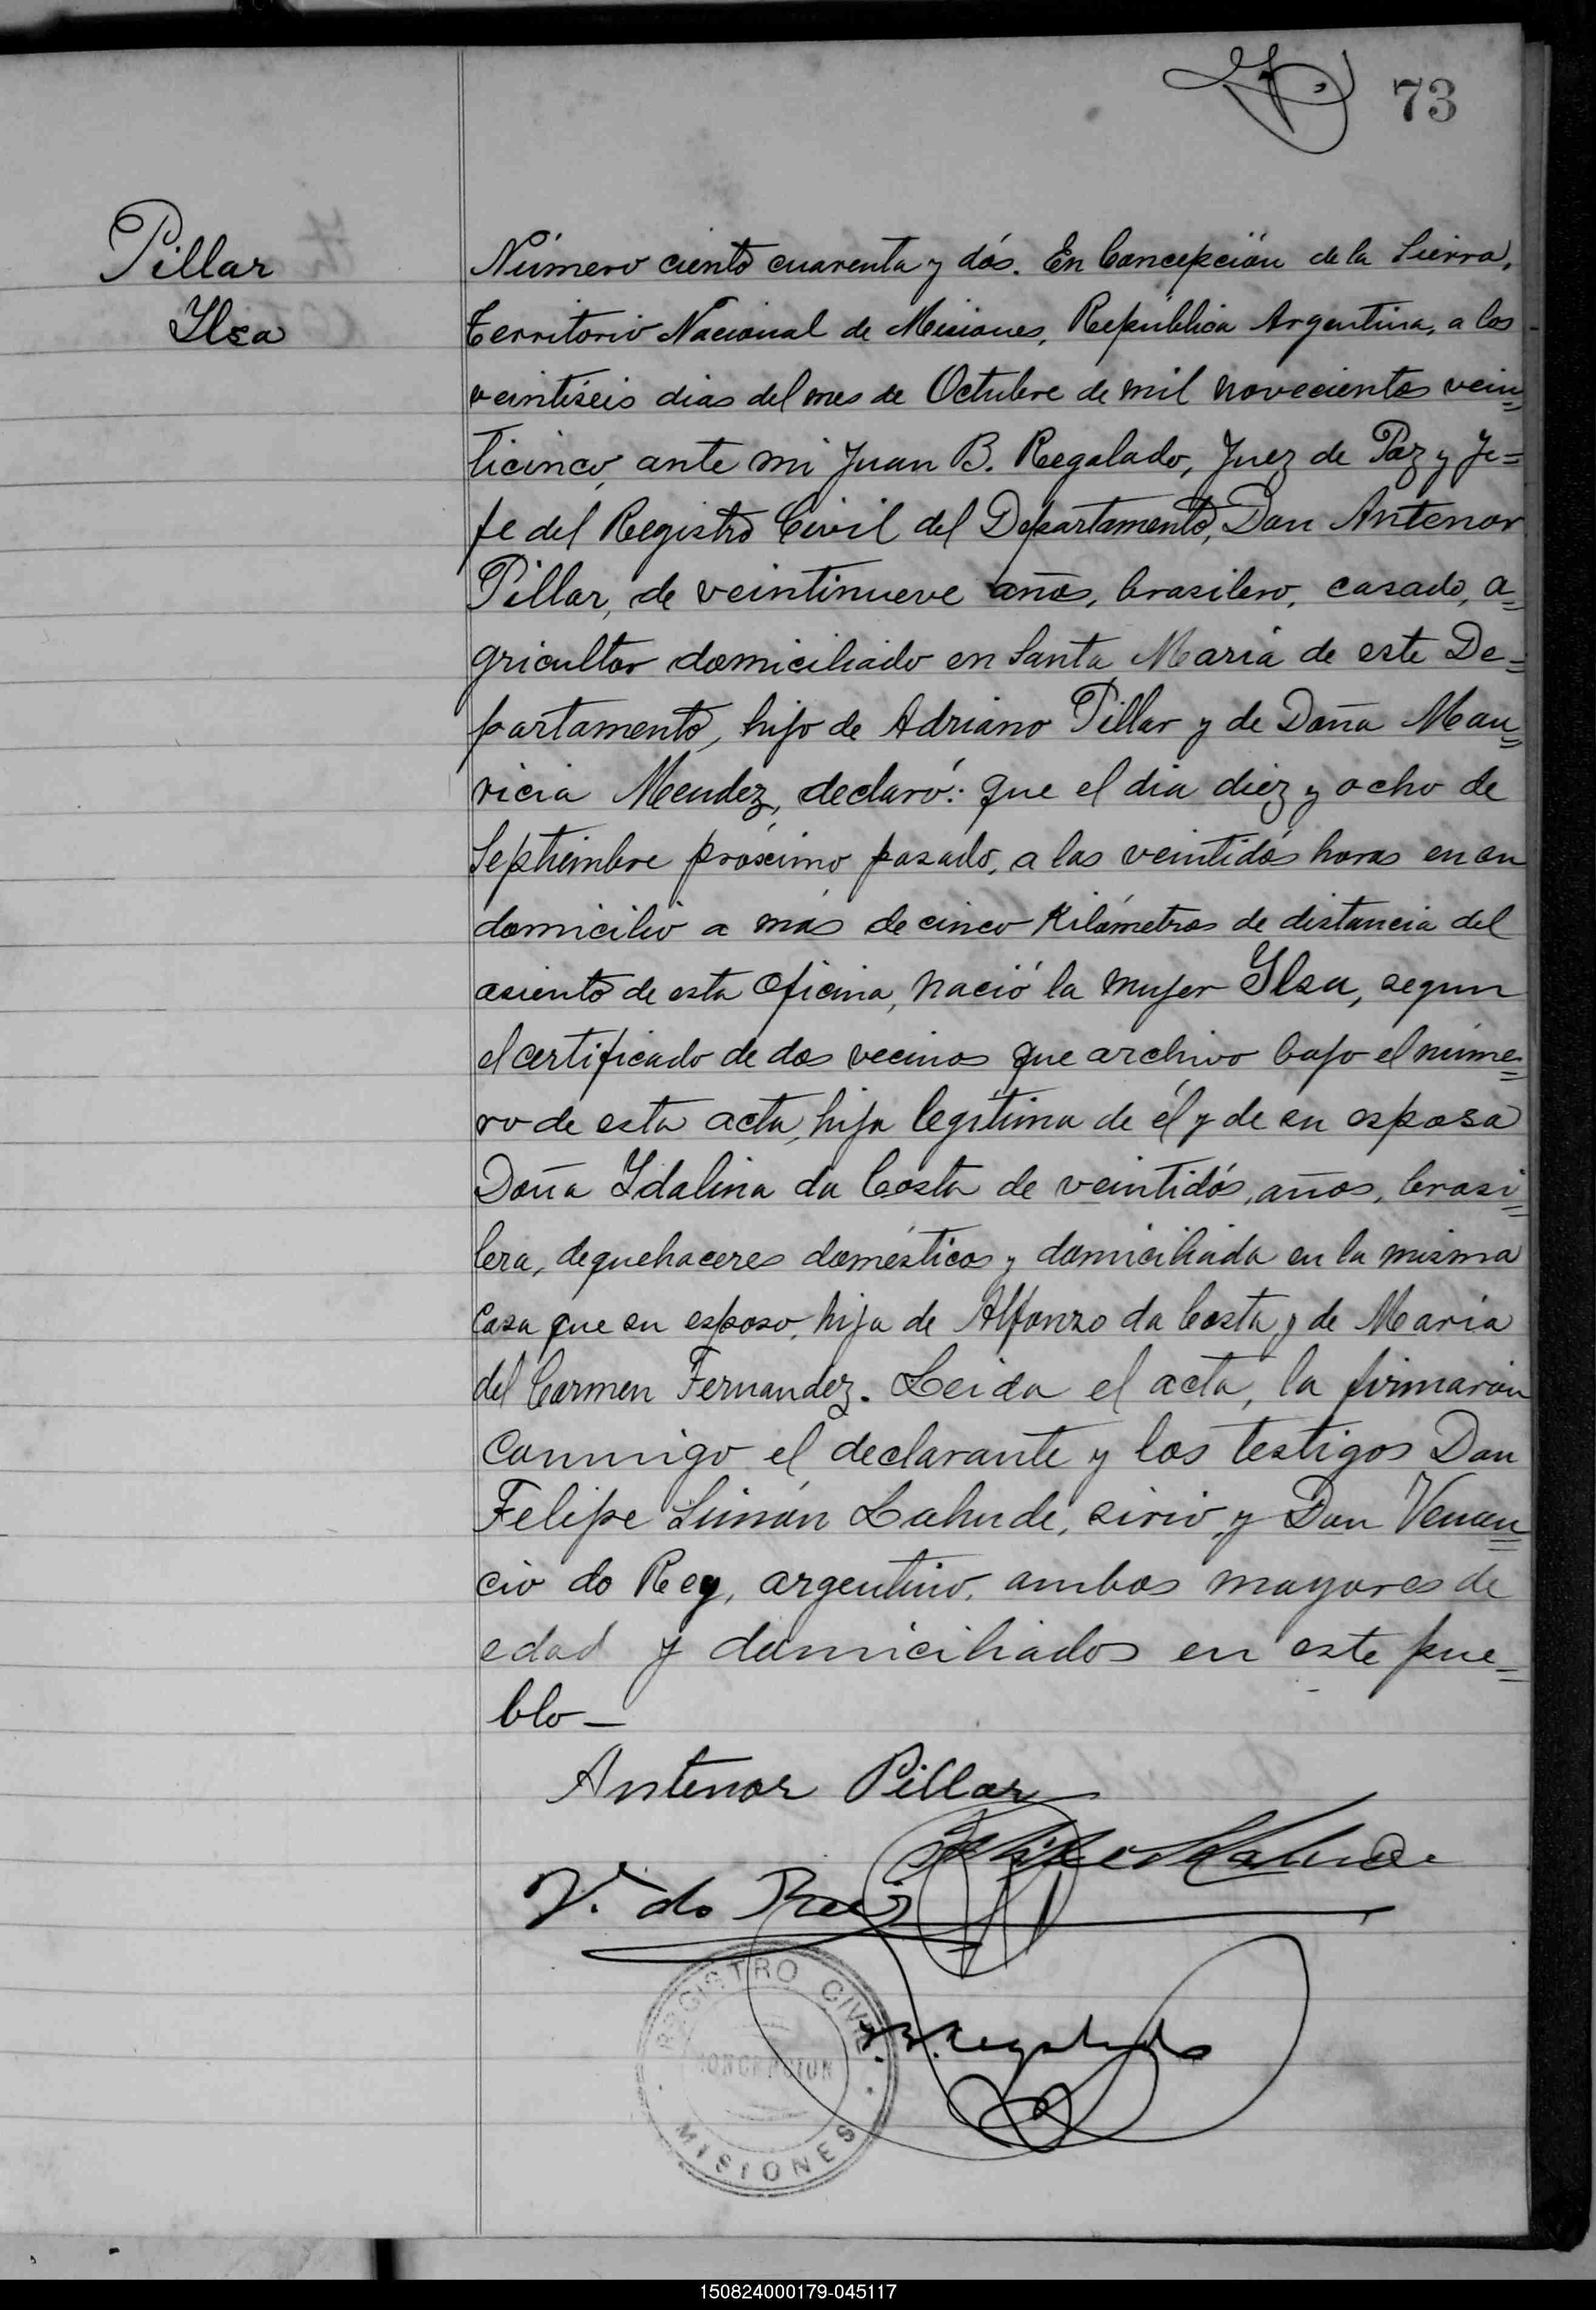 73
Pillar
Ilsa
Número ciento cuarenta y dós. En Concepción de la Sierra,
Territorio Nacional de Misiones, República Argentina, a los
veintiséis dias del mes de Octubre de mil novecientos vein=
ticinco, ante mi Juan B. Regalado, Juez de Paz y Je=
fe del Registro Civil del Departamento, Don Antenor
Pillar, de veintinueve años, brasilero, casado, a=
gricultor domiciliado en Santa María de este De=
partamento, hijo de Adriano Pillar y de Doña Mau=
ricia Mendez, declaró: que el dia diez y ocho de
Septiembre próximo pasado, a las veintidós horas en su
domicilio a más de cinco Kilómetros de distancia del
asiento de esta Oficina, nació la mujer Ilsa, segun
el certificado de dos vecinos que archivo bajo el núme=
ro de esta acta, hija legítima de él y de su esposa
Doña Idalina da Costa de veintidós, años, brasi=
lera, de quehaceres domésticos y domiciliada en la misma
casa que su esposo, hija de Alfonzo da Costa y de María
del Carmen Fernandez. Leida el acta, la firmaron
conmigo el declarante y los testigos Don
Felipe Simón Lahude, sirio, y Don Venan=
cio do Rey, argentino, ambos mayores de
edad y domiciliados en este pue=
blo—
Antenor Pillar
V. do Rey
REGISTRO CIVIL
CONCEPCION
MISIONES
J. B. Regalado
150824000179-045117